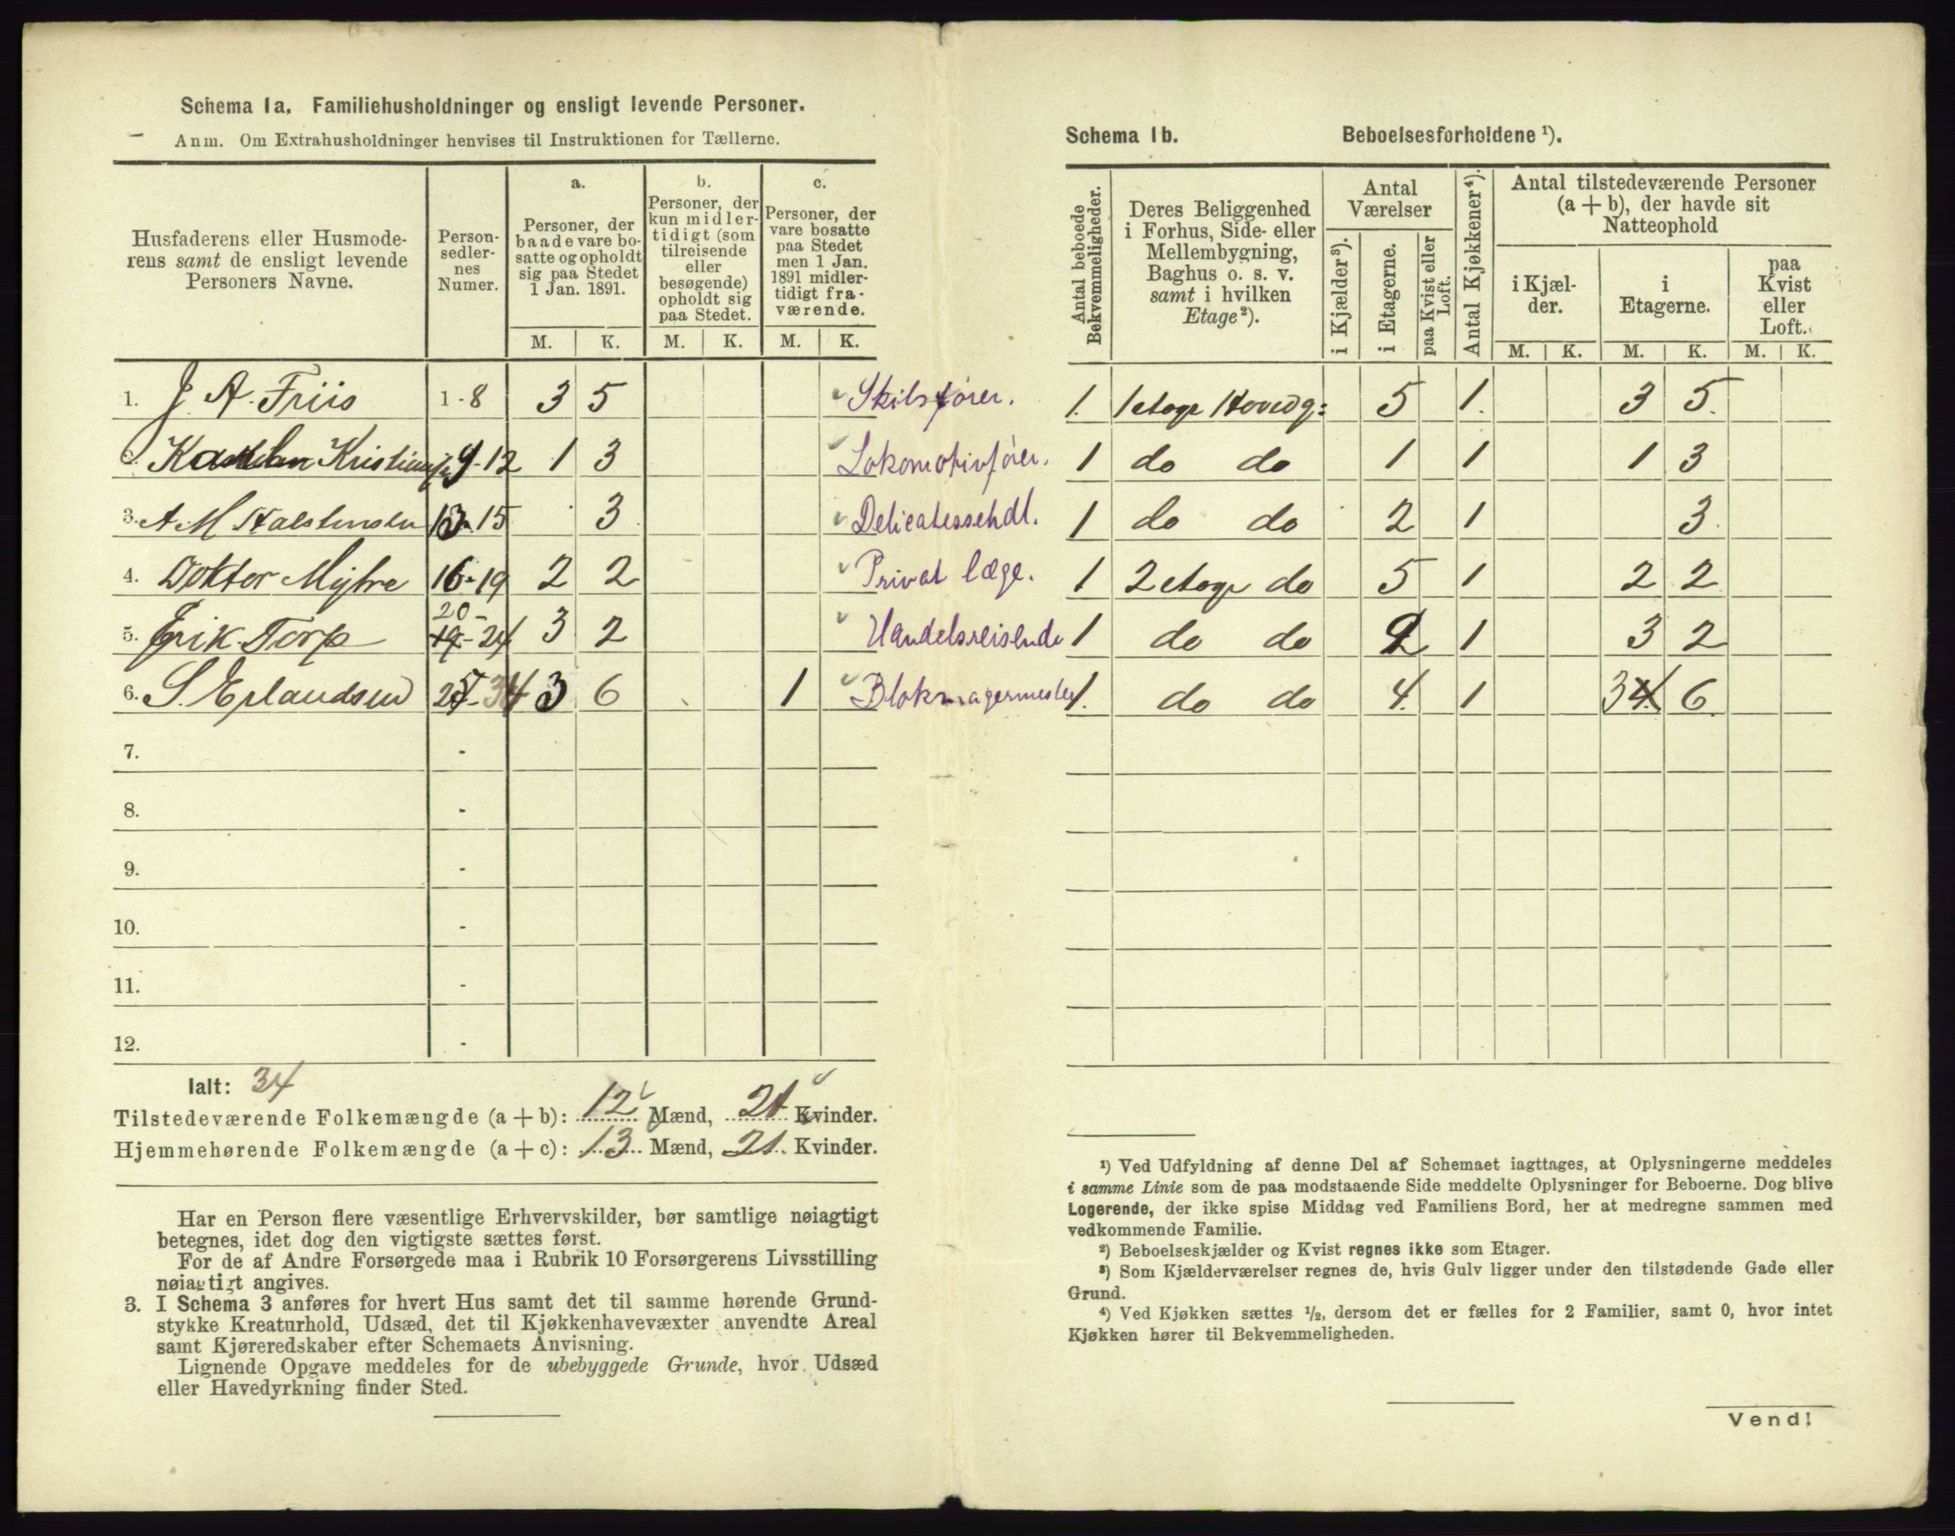 Schema 1a. Familiehusholdninger og ensligt levende Personer.
Anm. Om Extrahusholdninger henvises til Instruktionen for Tællerne.
Husfaderens eller Husmode-
rens samt de ensligt levende
Personers Navne.
Person-
sedler-
nes
Numer.
a.
Personer, der
baade vare bo-
satte og opholdt
sig paa Stedet
1 Jan. 1891.
b.
Personer, der
kun midler-
tidigt (som
tilreisende
eller
besøgende)
opholdt sig
paa Stedet.
c.
Personer, der
vare bosatte
paa Stedet
men 1 Jan.
1891 midler-
tidigt fra-
værende.
M. K. M. K. M. K.
1. J. A. Friis 1-8 3 5 Skibsfører.
2. Kristiansen 9-12 1 3 Lokomotivfører.
3. A M Halstensen 13-15 3 Delicatessehdl.
4. Doktor Myhre 16-19 2 2 Privat læge.
5. Erik Torp 20-24 3 2 Handelsreisende
6. S. Erlandsen 25-34 3 6 1 Blokmagermester
7. -
8. -
9. -
10. -
11. -
12. -
Ialt: 34
Tilstedeværende Folkemængde (a + b): 12 Mænd, 21 Kvinder.
Hjemmehørende Folkemængde (a + c): 13 Mænd, 21 Kvinder.
Har en Person flere væsentlige Erhvervskilder, bør samtlige nøiagtigt
betegnes, idet dog den vigtigste sættes først.
For de af Andre Forsørgede maa i Rubrik 10 Forsørgerens Livsstilling
nøiagtigt angives.
3. I Schema 3 anføres for hvert Hus samt det til samme hørende Grund-
stykke Kreaturhold, Udsæd, det til Kjøkkenhavevæxter anvendte Areal
samt Kjøreredskaber efter Schemaets Anvisning.
Lignende Opgave meddeles for de ubebyggede Grunde, hvor Udsæd
eller Havedyrkning finder Sted.
Schema 1b. Beboelsesforholdene ¹).
Antal beboede
Bekvemmeligheder.
Deres Beliggenhed
i Forhus, Side- eller
Mellembygning,
Baghus o. s. v.
samt i hvilken
Etage²).
Antal
Værelser
i Kjælder³).
i Etagerne.
paa Kvist eller
Loft.
Antal Kjøkkener⁴).
Antal tilstedeværende Personer
(a + b), der havde sit
Natteophold
i Kjæl-
der.
i
Etagerne.
paa
Kvist
eller
Loft.
M. K. M. K. M. K.
1. 1 etage Hovedg: 5 1. 3 5.
1 do do 1 1 1 3
1 do do 2 1 3
1 2 etage do 5 1 2 2
1 do do 2 1 3 2
1. do do 4. 1 3 4. 6.
¹) Ved Udfyldning af denne Del af Schemaet iagttages, at Oplysningerne meddeles
i samme Linie som de paa modstaaende Side meddelte Oplysninger for Beboerne. Dog blive
Logerende, der ikke spise Middag ved Familiens Bord, her at medregne sammen med
vedkommende Familie.
²) Beboelseskjælder og Kvist regnes ikke som Etager.
³) Som Kjælderværelser regnes de, hvis Gulv ligger under den tilstødende Gade eller
Grund.
⁴) Ved Kjøkken sættes ½, dersom det er fælles for 2 Familier, samt 0, hvor intet
Kjøkken hører til Bekvemmeligheden.
Vend!